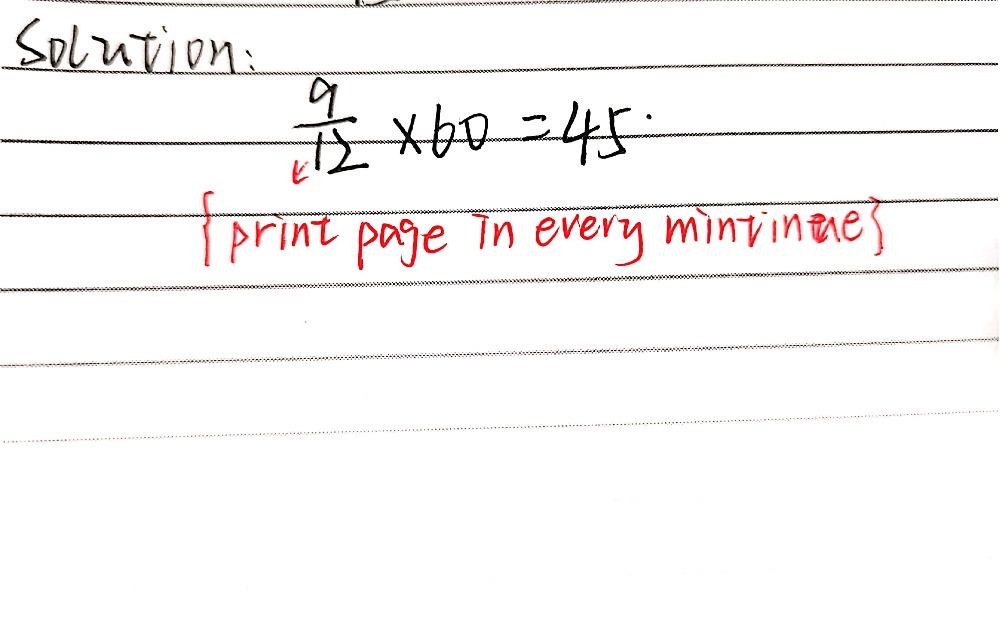 Solution:
9/12 × 60 = 45.
{print page in every mintinue}